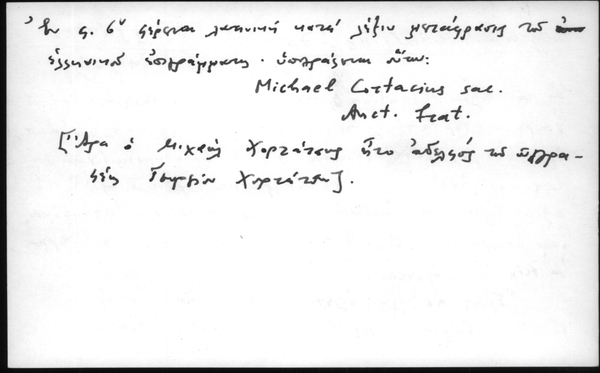 Ἐν φ. 6ᵛ φέρεται λατινικὴ κατὰ λέξιν μετάφρασις τοῦ
ἑλληνικοῦ ἐπιγράμματος. ὑπογράφεται οὕτω:
Michael Cortacius sac.
Auct. Frat.
[Ἆρα ὁ Μιχαὴλ Χορτάτσης ἦτο ἀδελφὸς τοῦ συγγρα-
φέως Γεωργίου Χορτάτση].